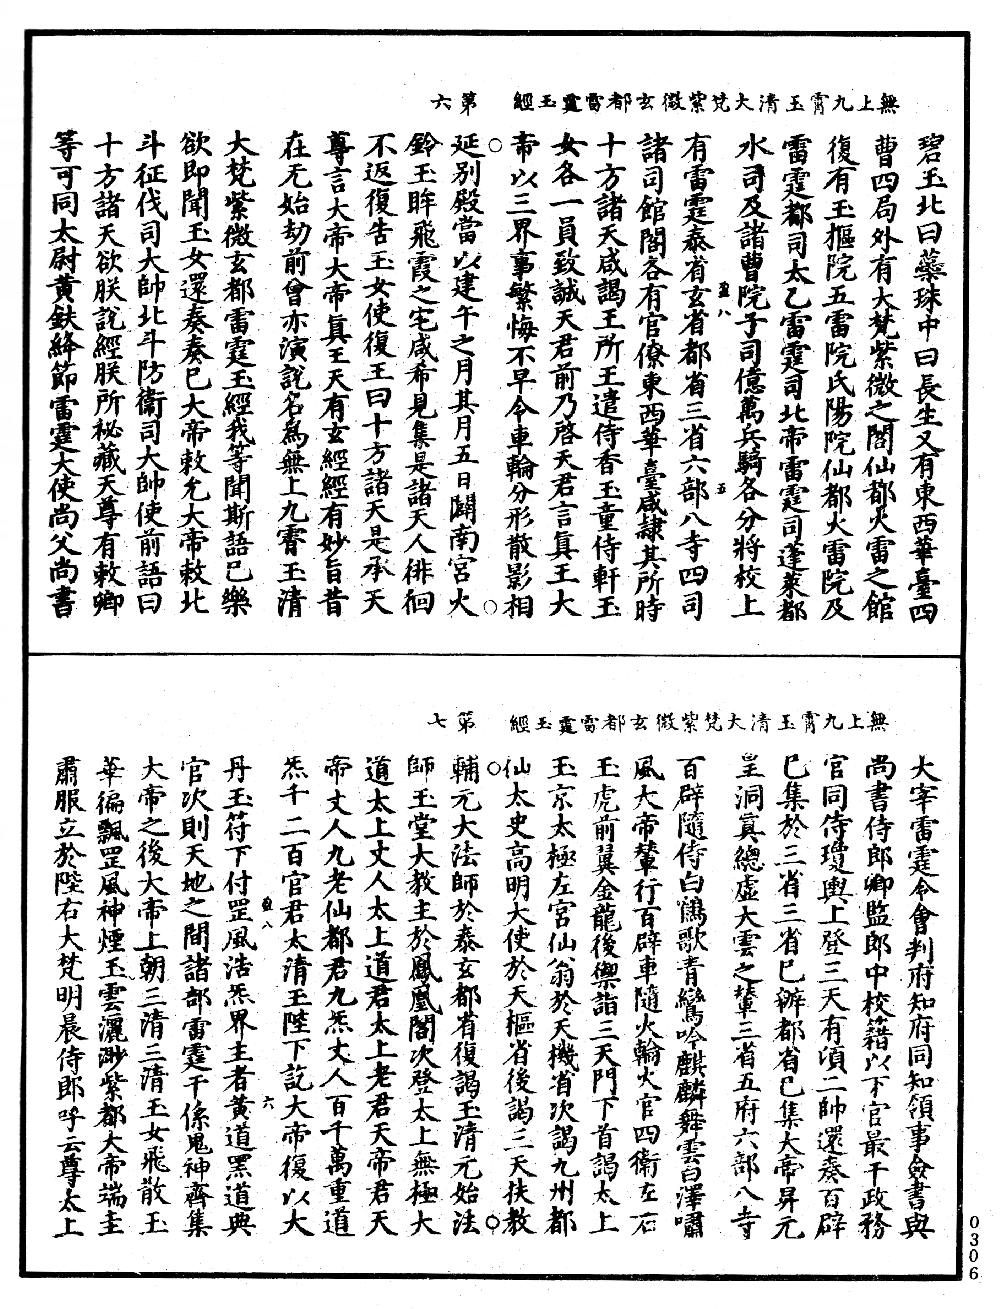 無上九霄玉清大梵紫微玄都雷霆玉經　第六
碧玉北曰蘂珠中曰長生又有東西華臺四
曹四局外有大梵紫微之閣仙都火雷之館
復有玉樞院五雷院氏陽院仙都火雷院及
雷霆都司太乙雷霆司北帝雷霆司蓬萊都
水司及諸曹院子司億萬兵騎各分將校上
有雷霆泰省玄省都省三省六部八寺四司
諸司館閣各有官僚東西華臺咸隷其所時
十方諸天咸謁王所王遣侍香玉童侍軒玉
女各一員致誠天君前乃啓天君言真王大
帝以三界事繁悔不早令車輪分形散影相
延別殿當以建午之月其月五日闢南宮火
鈴玉眸飛霞之宅咸希見集是諸天人徘徊
不返復告玉女使復王曰十方諸天是承天
尊言大帝大帝真王天有玄經經有妙旨昔
在无始劫前曾亦演說名爲無上九霄玉清
大梵紫微玄都雷霆玉經我等聞斯語已樂
欲即聞玉女還奏奏已大帝敕允大帝敕北
斗征伐司大帥北斗防衛司大帥使前語曰
十方諸天欲朕說經朕所秘藏天尊有敕卿
等可同太尉黃鉞絳節雷霆大使尚父尚書
無上九霄玉清大梵紫微玄都雷霆玉經　第七
大宰雷霆令會判府知府同知領事僉書與
尚書侍郎卿監郎中校籍以下官最干政務
官同侍瓊輿上登三天有頃二帥還奏百辟
已集於三省三省已辦都省已集大帝昇元
皇洞真總虛大雲之輦三省五府六部八寺
百辟隨侍白鶴歌青鸞吟麒麟舞雲白澤嘯
風大帝輦行百辟車隨火輪火官四衛左右
玉虎前翼金龍後禦詣三天門下首謁太上
玉京太極左宮仙翁於天機省次謁九州都
仙太史高明大使於天樞省後謁三天扶教
輔元大法師於泰玄都省復謁玉清元始法
師玉堂大教主於鳳凰閣次登太上無極大
道太上丈人太上道君太上老君天帝君天
帝丈人九老仙都君九炁丈人百千萬重道
炁千二百官君太清玉陛下說大帝復以大
丹玉符下付罡風浩炁界主者黃道黑道典
官次則天地之間諸部雷霆干係鬼神齊集
大帝之後大帝上朝三清三清玉女飛散玉
華徧飄罡風神煙玉雲灑渺紫都大帝端圭
肅服立於陛右大梵明晨侍郎呼云尊太上
0306